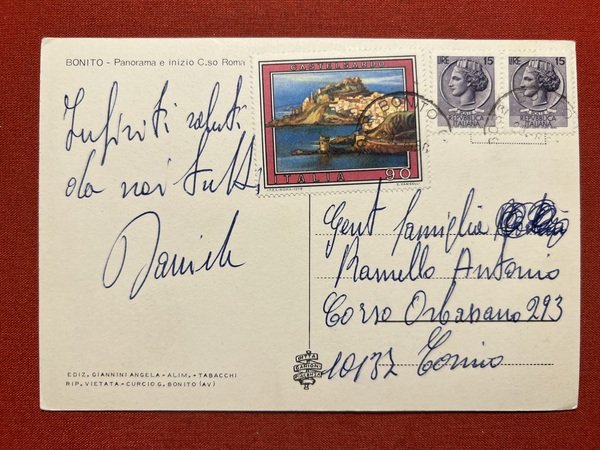 BONITO - Panorama e inizio C.so Roma
Infiniti saluti
da noi tutti
Daniele
EDIZ. GIANNINI ANGELA - ALIM. - TABACCHI
RIP. VIETATA - CURCIO G. BONITO (AV)
CASTELSARDO
ITALIA 90
LIRE 15
REPVBBLICA
ITALIANA
LIRE 15
REPVBBLICA
ITALIANA
BONITO
Gent famiglia
Ramello Antonio
Corso Orbassano 293
10137 Torino